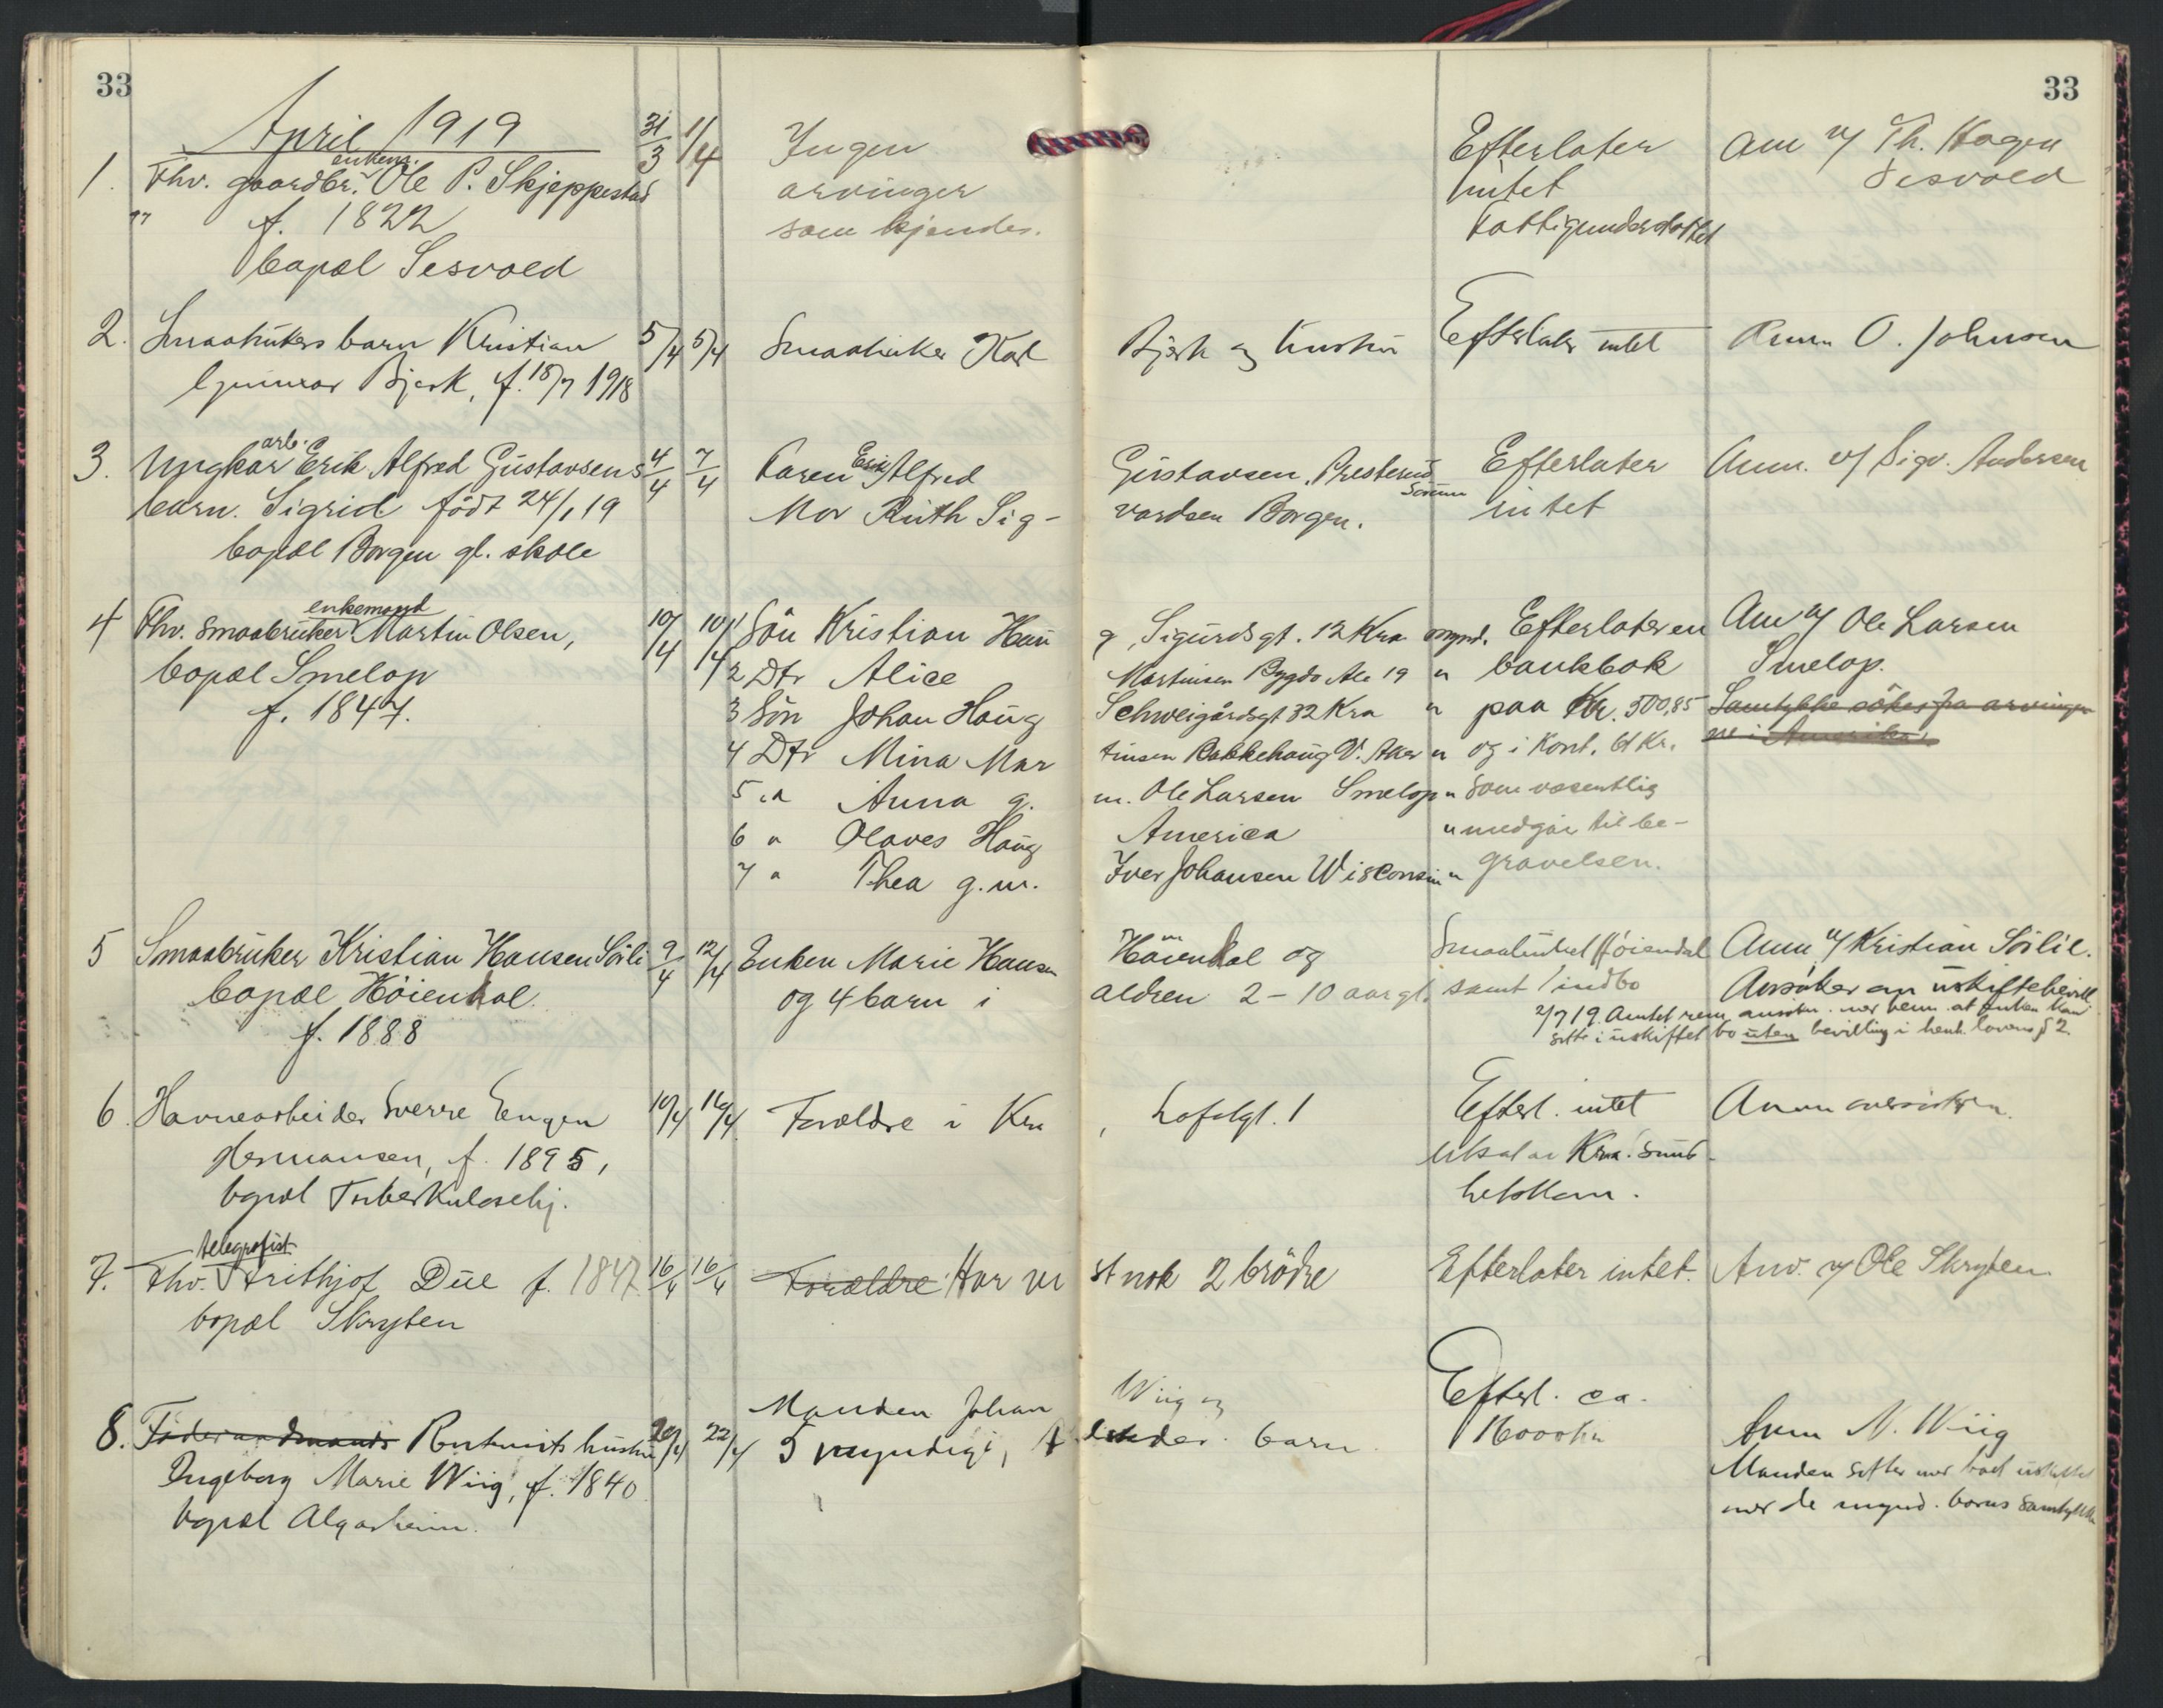 33
33
April 1919
1. Fhv. gaardbr. enkem. Ole P. Skjeppestad 31/3 1/4 Ingen Efterlater Anm v/ Th. Hagen
" f. 1822 arvinger intet Sesvold
bopæl Sesvold som kjendes. Fattigunderstøttet
2. Smaabrukers barn Kristian 5/4 5/4 Smaabruker Karl Bjerk og hustru Efterlater intet Anm. O. Johnsen
Gunnar Bjerk, f. 18/7 1918
3. Ungkar arb. Erik Alfred Gustavsens 4/4 7/4 Faren Erik Alfred Gustavsen, Presterud Sørum Efterlater Anm. v/ Sigv. Andersen
barn. Sigrid født 24/1 19 Mor Ruth Sigvardsen Borgen. intet
bopæl Borgen gl. skole
4 Fhv. smaabruker enkemand Martin Olsen, 10/4 10/4 1 Sön Kristian Haug, Sigurdsgt. 12 Kra mynd. Efterlater en Anm v/ Ole Larsen
bopæl Smelop 2 Dtr Alice Martinsen Bygdø Ale 19 " bankbok Smelop.
f. 1847. 3 Sön Johan Haug Schweigårdsgt 32 Kra " paa Kr. 500,85 Samtykke søkes fra arvingene i Amerika.
4 Dtr Mina Martinsen Bakkehaug V. Aker " og i kont. 61 Kr.
5 " Anna g. m. Ole Larsen Smelop " som væsentlig
6 " Olaves Haug America " medgår til be-
7 " Thea g. m. Iver Johansen Wisconsin " gravelsen.
5 Smaabruker Kristian Hansen Sörli 9/4 12/4 Enken Marie Hansen Höiendal og Smaabruket Höiendal Anm. v/ Kristian Sörlie.
bopæl Höiendal. og 4 barn i alderen 2-10 aar gl. samt indbo Ansøker om uskiftebevill
f. 1888 2/7 19. Amtet rem. ansøkn. med bem. at enken kan
sitte i uskiftet bo uten bevilling i henh. lovens § 2.
6 Havnearbeider Sverre Eugen 10/4 16/4 Forældre i Kra, Efterl. intet Anm
Hermansen, f. 1895, Kra. sund-
bopæl Tuberkulosehj. hetskom.
7. Fhv. telegrafist Frithjof Due f. 1847 16/4 16/4 Forældre Har vist nok 2 brödre Efterlater intet. Anv. v/ Ole Skryten
bopæl Skryten
8. Föderaadmands Rentenists hustru 20/4 22/4 Manden Johan Wiig og Efterl. ca. Anm N. Wiig
Ingeborg Marie Wiig, f. 1840 5 myndige, barn 16000 kr Manden sitter med boet uskiftet
bopæl Algarheim. med de mynd. barns samtykke